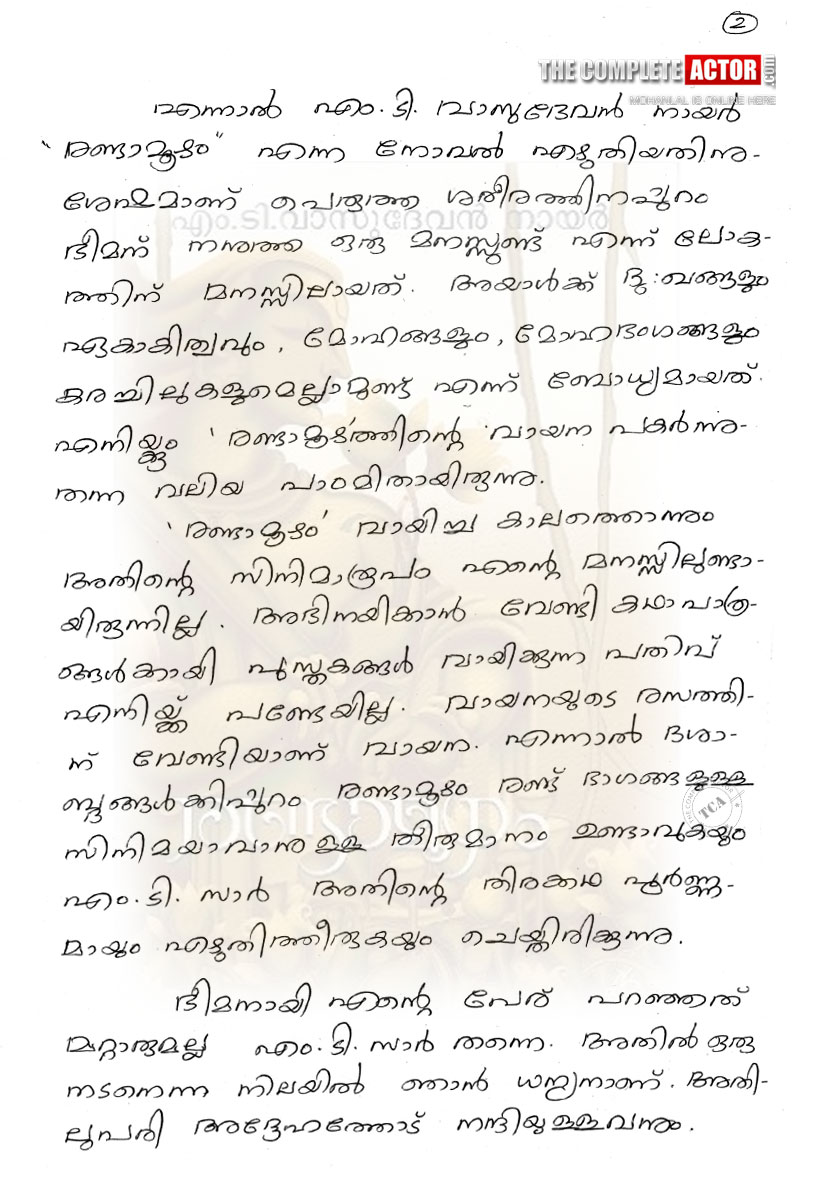 2
THE COMPLETE ACTOR .COM
MOHANLAL IS ONLINE HERE
എന്നാൽ എം.ടി. വാസുദേവൻ നായർ
"രണ്ടാമൂഴം" എന്ന നോവൽ എഴുതിയതിനു-
ശേഷമാണ് പെരുത്ത ശരീരത്തിനപ്പുറം
എം.ടി.വാസുദേവൻ നായർ
ഭീമന് നനുത്ത ഒരു മനസ്സുണ്ട് എന്ന് ലോക-
ത്തിന് മനസ്സിലായത്. അയാൾക്ക് ദു:ഖങ്ങളും
ഏകാകിത്വവും, മോഹങ്ങളും, മോഹഭംഗങ്ങളും
കരച്ചിലുകളുമെല്ലാമുണ്ട് എന്ന് ബോധ്യമായത്.
എനിയ്ക്കും 'രണ്ടാമൂഴ'ത്തിന്റെ വായന പകർന്നു-
തന്ന വലിയ പാഠമിതായിരുന്നു.
'രണ്ടാമൂഴം' വായിച്ച കാലത്തൊന്നും
അതിന്റെ സിനിമാരൂപം എന്റെ മനസ്സിലുണ്ടാ-
യിരുന്നില്ല. അഭിനയിക്കാൻ വേണ്ടി കഥാപാത്ര-
ങ്ങൾക്കായി പുസ്തകങ്ങൾ വായിക്കുന്ന പതിവ്
എനിയ്ക്ക് പണ്ടേയില്ല. വായനയുടെ രസത്തി-
ന് വേണ്ടിയാണ് വായന. എന്നാൽ ദശാ-
ബ്ദങ്ങൾക്കിപ്പുറം രണ്ടാമൂഴം രണ്ട് ഭാഗങ്ങളുള്ള
TCA
രണ്ടാമൂഴം
സിനിമയാവാനുള്ള തീരുമാനം ഉണ്ടാവുകയും
എം.ടി. സാർ അതിന്റെ തിരക്കഥ പൂർണ്ണ-
മായും എഴുതിത്തീരുകയും ചെയ്തിരിക്കുന്നു.
ഭീമനായി എന്റെ പേര് പറഞ്ഞത്
മറ്റാരുമല്ല എം.ടി. സാർ തന്നെ. അതിൽ ഒരു
നടനെന്ന നിലയിൽ ഞാൻ ധന്യനാണ്. അതി-
ലുപരി അദ്ദേഹത്തോട് നന്ദിയുള്ളവനും.